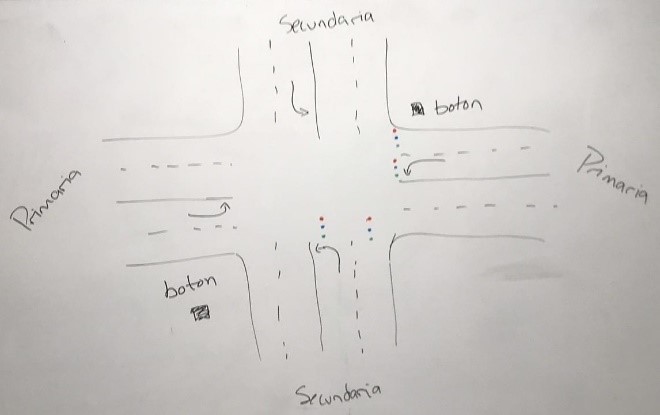 Secundaria
boton
Primaria
Primaria
boton
Secundaria